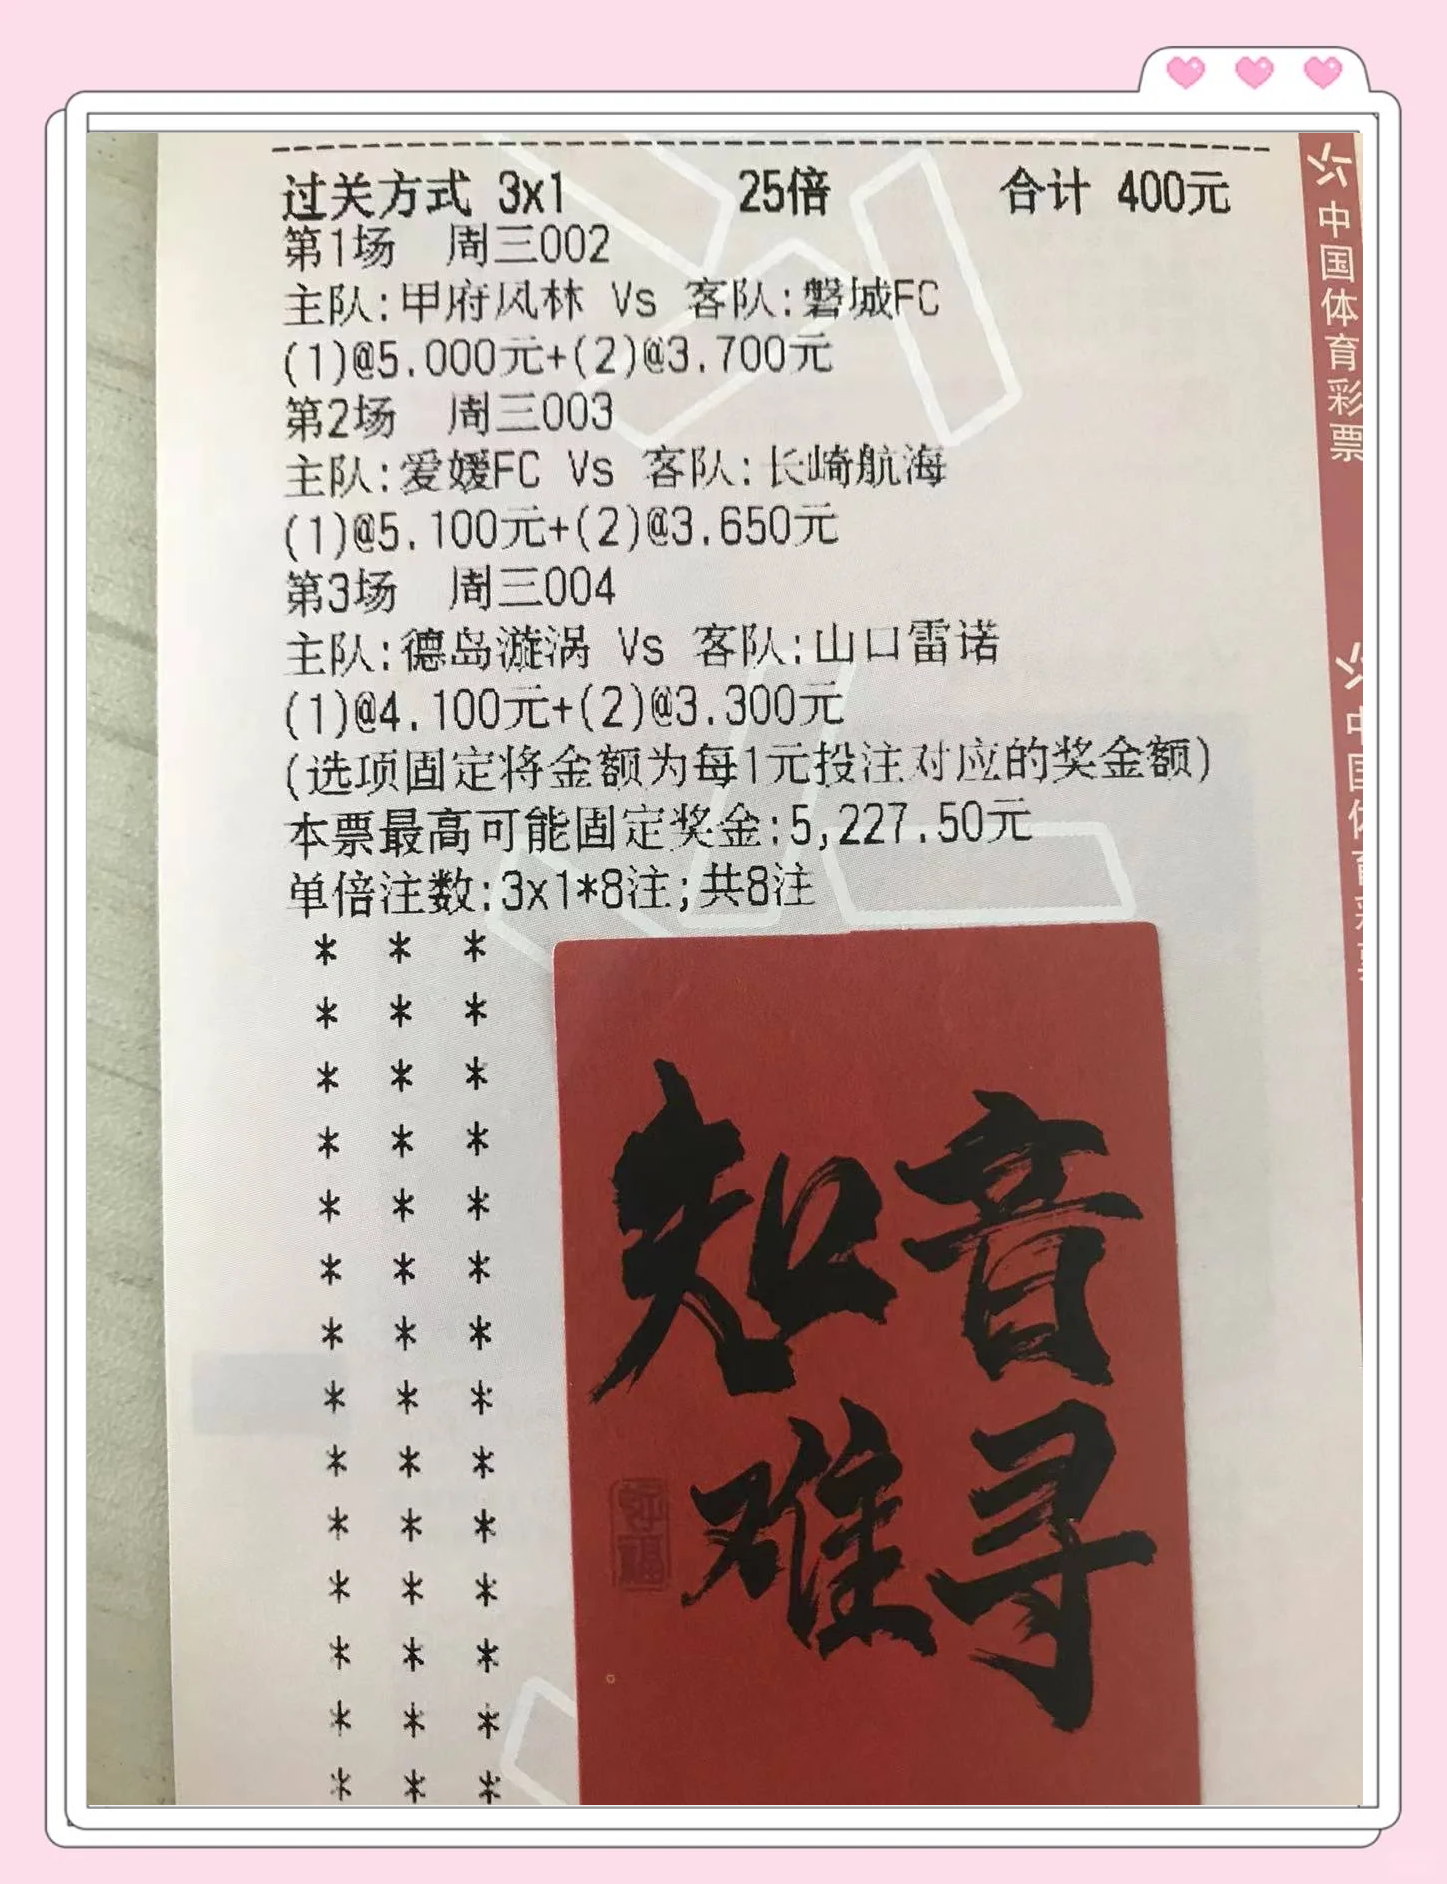 过关方式 3x1 25倍 合计 400元
第1场 周三002
主队:甲府风林 Vs 客队:磐城FC
(1)@5.000元+(2)@3.700元
第2场 周三003
主队:爱媛FC Vs 客队:长崎航海
(1)@5.100元+(2)@3.650元
第3场 周三004
主队:德岛漩涡 Vs 客队:山口雷诺
(1)@4.100元+(2)@3.300元
(选项固定将金额为每1元投注对应的奖金额)
本票最高可能固定奖金:5,227.50元
单倍注数:3x1*8注;共8注
* * *
* * *
* * *
* * *
* * *
* * *
* * *
* * *
* * *
* * *
* * *
* * *
* * *
* * *
知音
难寻
中国体育彩票
中国体育彩票